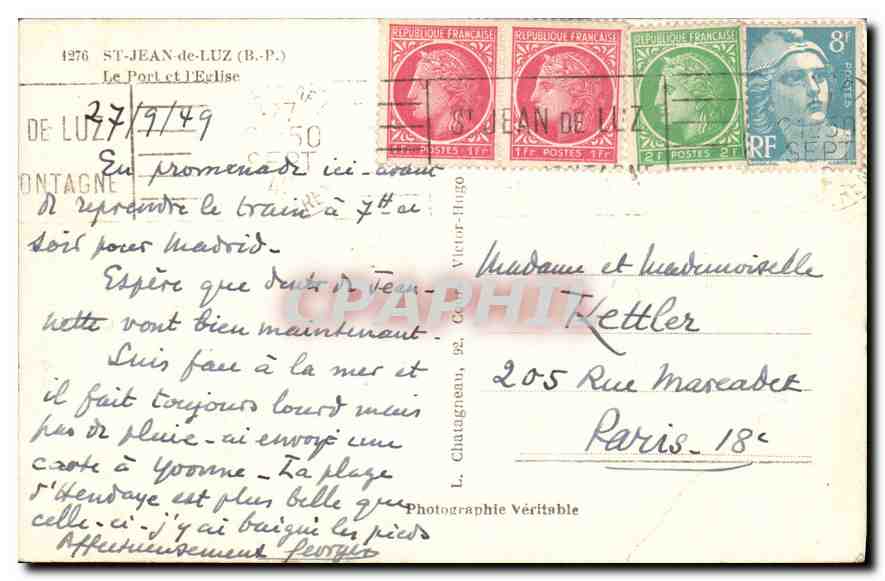 1276 ST-JEAN-de-LUZ (B.-P.)
Le Port et l'Eglise
27/9/49
DE LUZ
ONTAGNE
50
SEPT
REPUBLIQUE FRANÇAISE
1Fr POSTES 1Fr
REPUBLIQUE FRANÇAISE
1Fr POSTES 1Fr
REPUBLIQUE FRANÇAISE
2F POSTES 2F
8f
POSTES
RF
ST JEAN DE LUZ
SEPT
En promenade ici avant
de reprendre le train à 7H ce
soir pour Madrid -
Espère que dents de Jean-
nette vont bien maintenant.
Suis face à la mer et
il fait toujours lourd mais
pas de pluie - ai envoyé une
carte à Yvonne - La plage
d'Hendaye est plus belle que
celle-ci - j'y ai baigné les pieds
Affectueusement Georges
L. Chatagneau, 92, Cours Victor-Hugo
Madame et Mademoiselle
Kettler
205 Rue Marcadet
Paris - 18e
Photographie Véritable
CPAPHIL